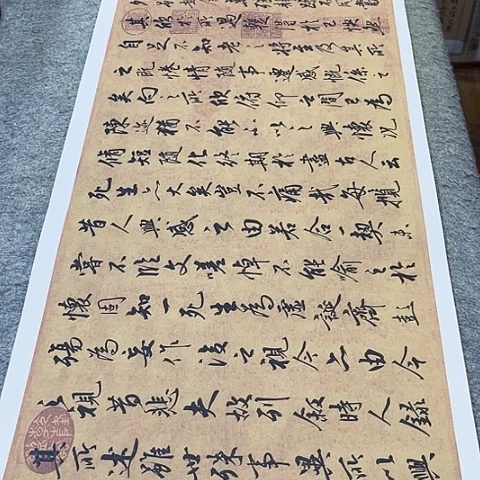 其欣於所遇蹔得於己快然
自足不知老之將至及其所
之既惓情隨事遷感慨係之
矣向之所欣俛仰之間已為
陳迹猶不能不以之興懷況
脩短隨化終期於盡古人云
死生亦大矣豈不痛哉每攬
昔人興感之由若合一契未
嘗不臨文嗟悼不能喻之於
懷固知一死生為虛誕齊彭
殤為妄作後之視今亦由今
之視昔悲夫故列叙時人錄
其所述雖世殊事異所以興